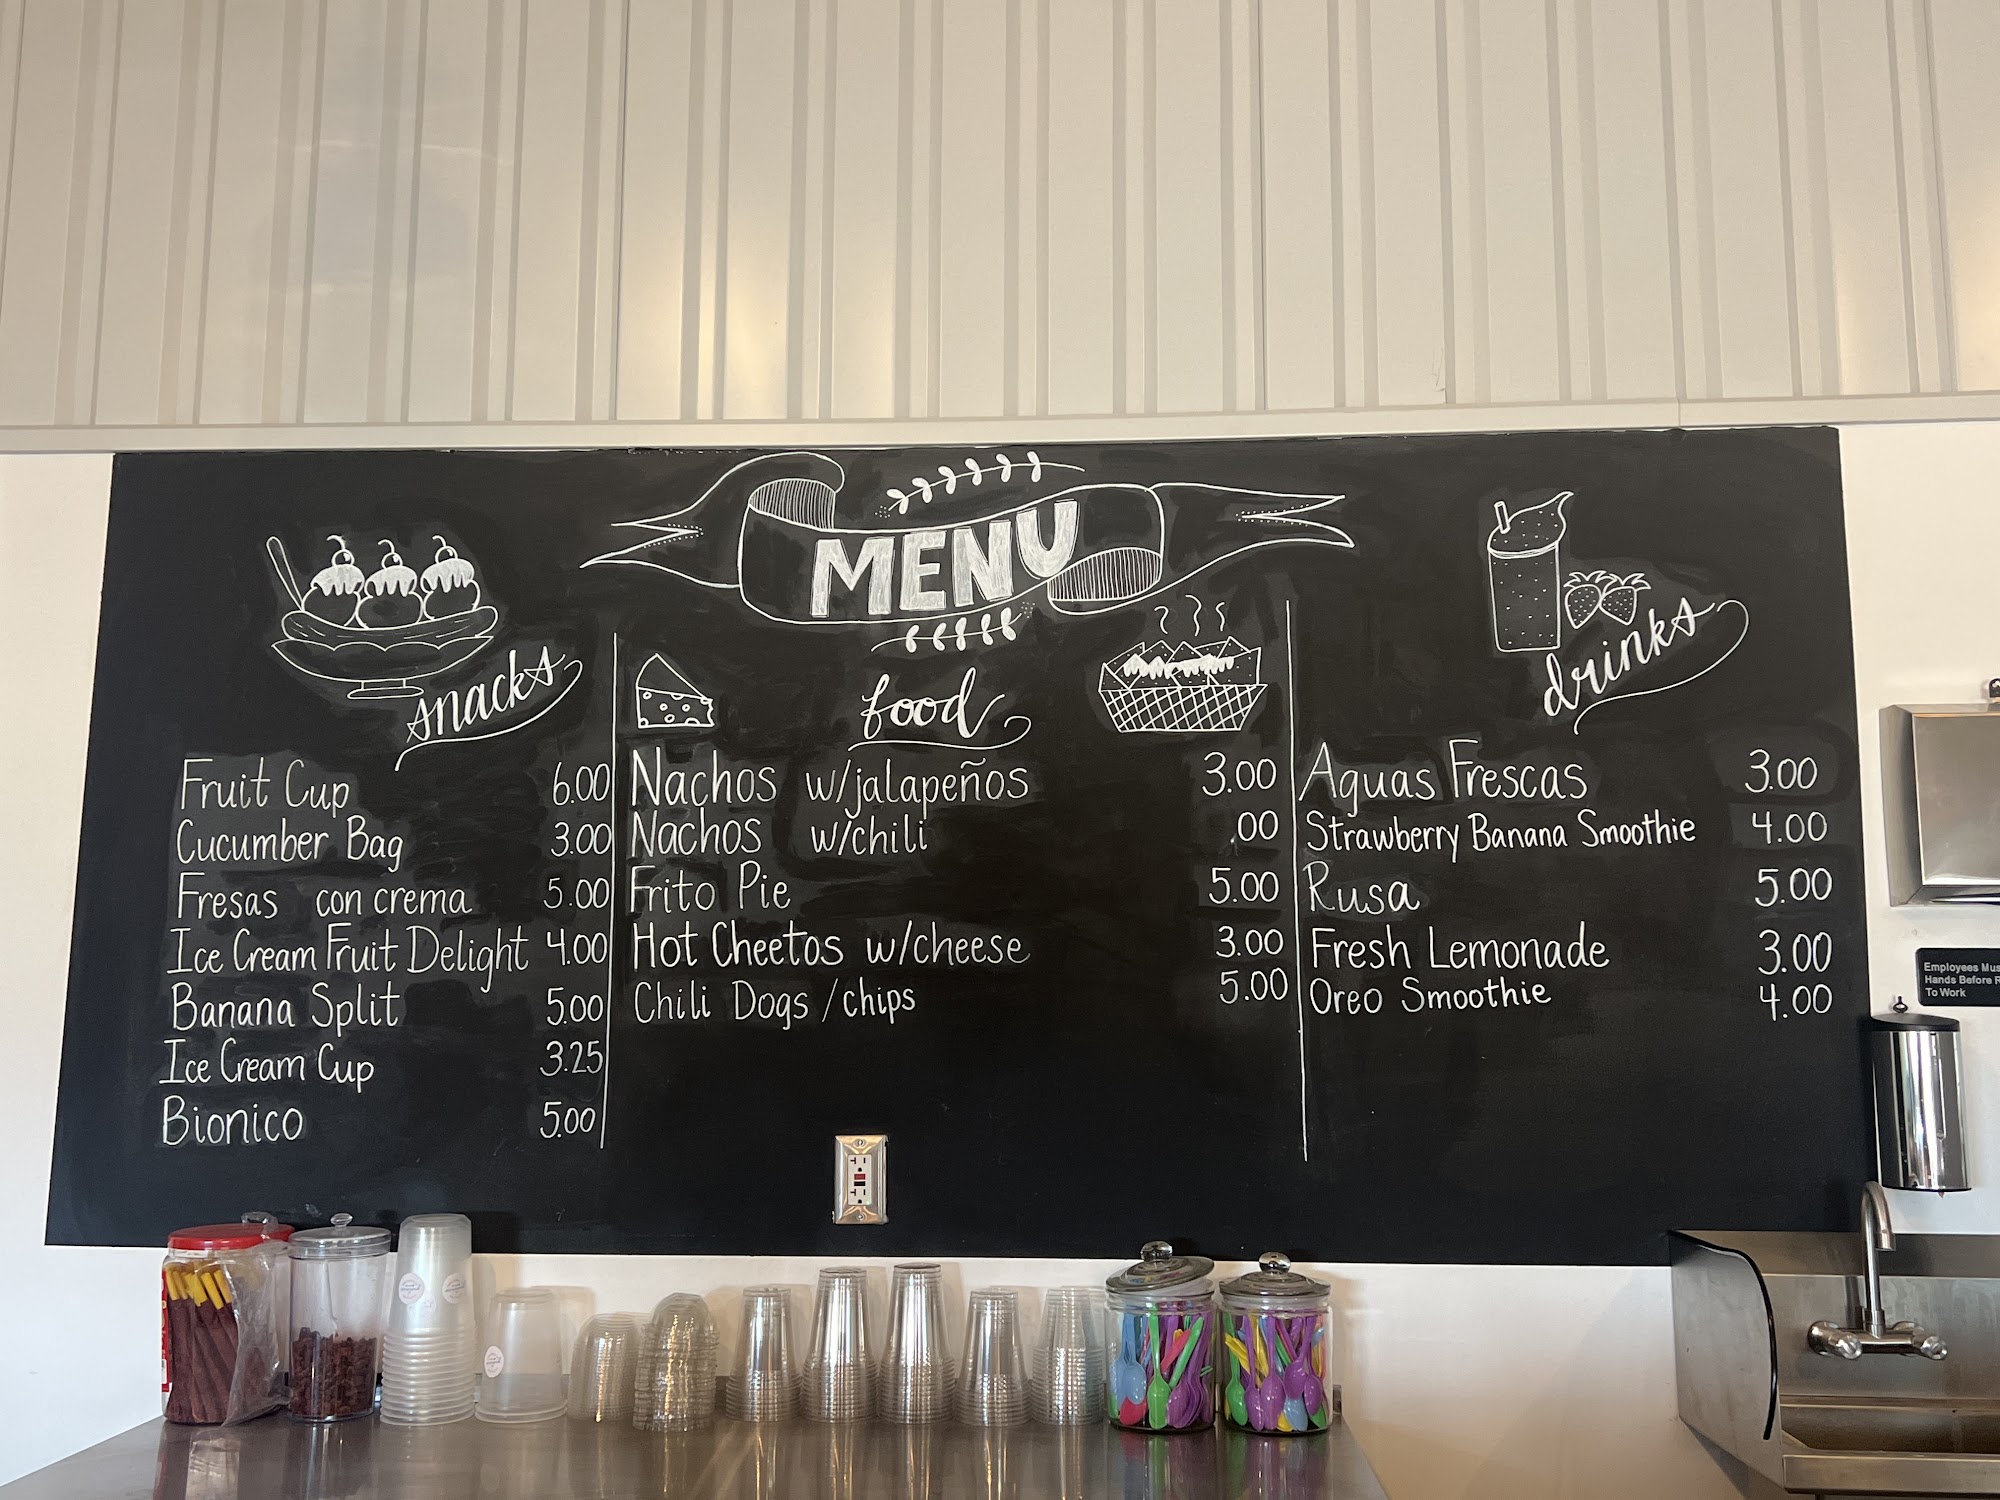 MENU
snacks
Fruit Cup 6.00
Cucumber Bag 3.00
Fresas con crema 5.00
Ice Cream Fruit Delight 4.00
Banana Split 5.00
Ice Cream Cup 3.25
Bionico 5.00
food
Nachos w/jalapeños 3.00
Nachos w/chili .00
Frito Pie 5.00
Hot Cheetos w/cheese 3.00
Chili Dogs /chips 5.00
drinks
Aguas Frescas 3.00
Strawberry Banana Smoothie 4.00
Rusa 5.00
Fresh Lemonade 3.00
Oreo Smoothie 4.00
Employees Mus
Hands Before R
To Work